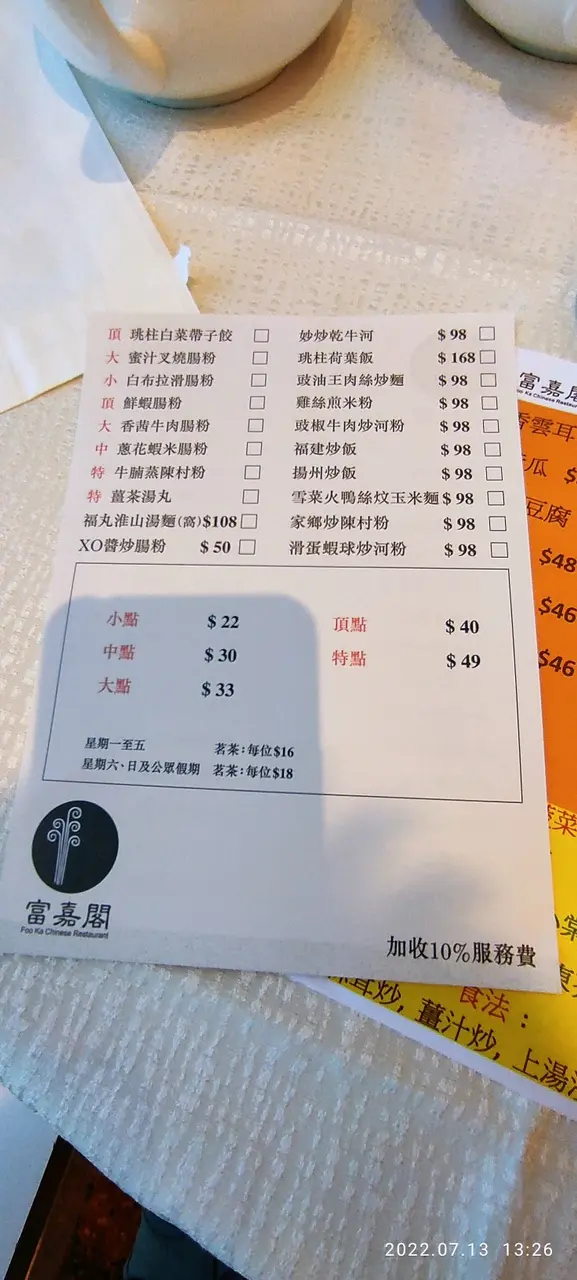 頂 珧柱白菜帶子餃
大 蜜汁叉燒腸粉
小 白布拉滑腸粉
頂 鮮蝦腸粉
大 香茜牛肉腸粉
中 蔥花蝦米腸粉
特 牛腩蒸陳村粉
特 薑茶湯丸
福丸淮山湯麵(窩)$108
XO醬炒腸粉 $ 50
妙炒乾牛河 $ 98
珧柱荷葉飯 $ 168
豉油王肉絲炒麵 $ 98
雞絲煎米粉 $ 98
豉椒牛肉炒河粉 $ 98
福建炒飯 $ 98
揚州炒飯 $ 98
雪菜火鴨絲炆玉米麵 $ 98
家鄉炒陳村粉 $ 98
滑蛋蝦球炒河粉 $ 98
小點 $ 22
中點 $ 30
大點 $ 33
頂點 $ 40
特點 $ 49
星期一至五 茗茶:每位$16
星期六、日及公眾假期 茗茶:每位$18
富嘉閣
Foo Ka Chinese Restaurant
加收10%服務費
富嘉
香雲耳
瓜 $
豆腐
$48
$46
$46
菜
食法：
炒, 薑汁炒, 上湯
2022.07.13 13:26